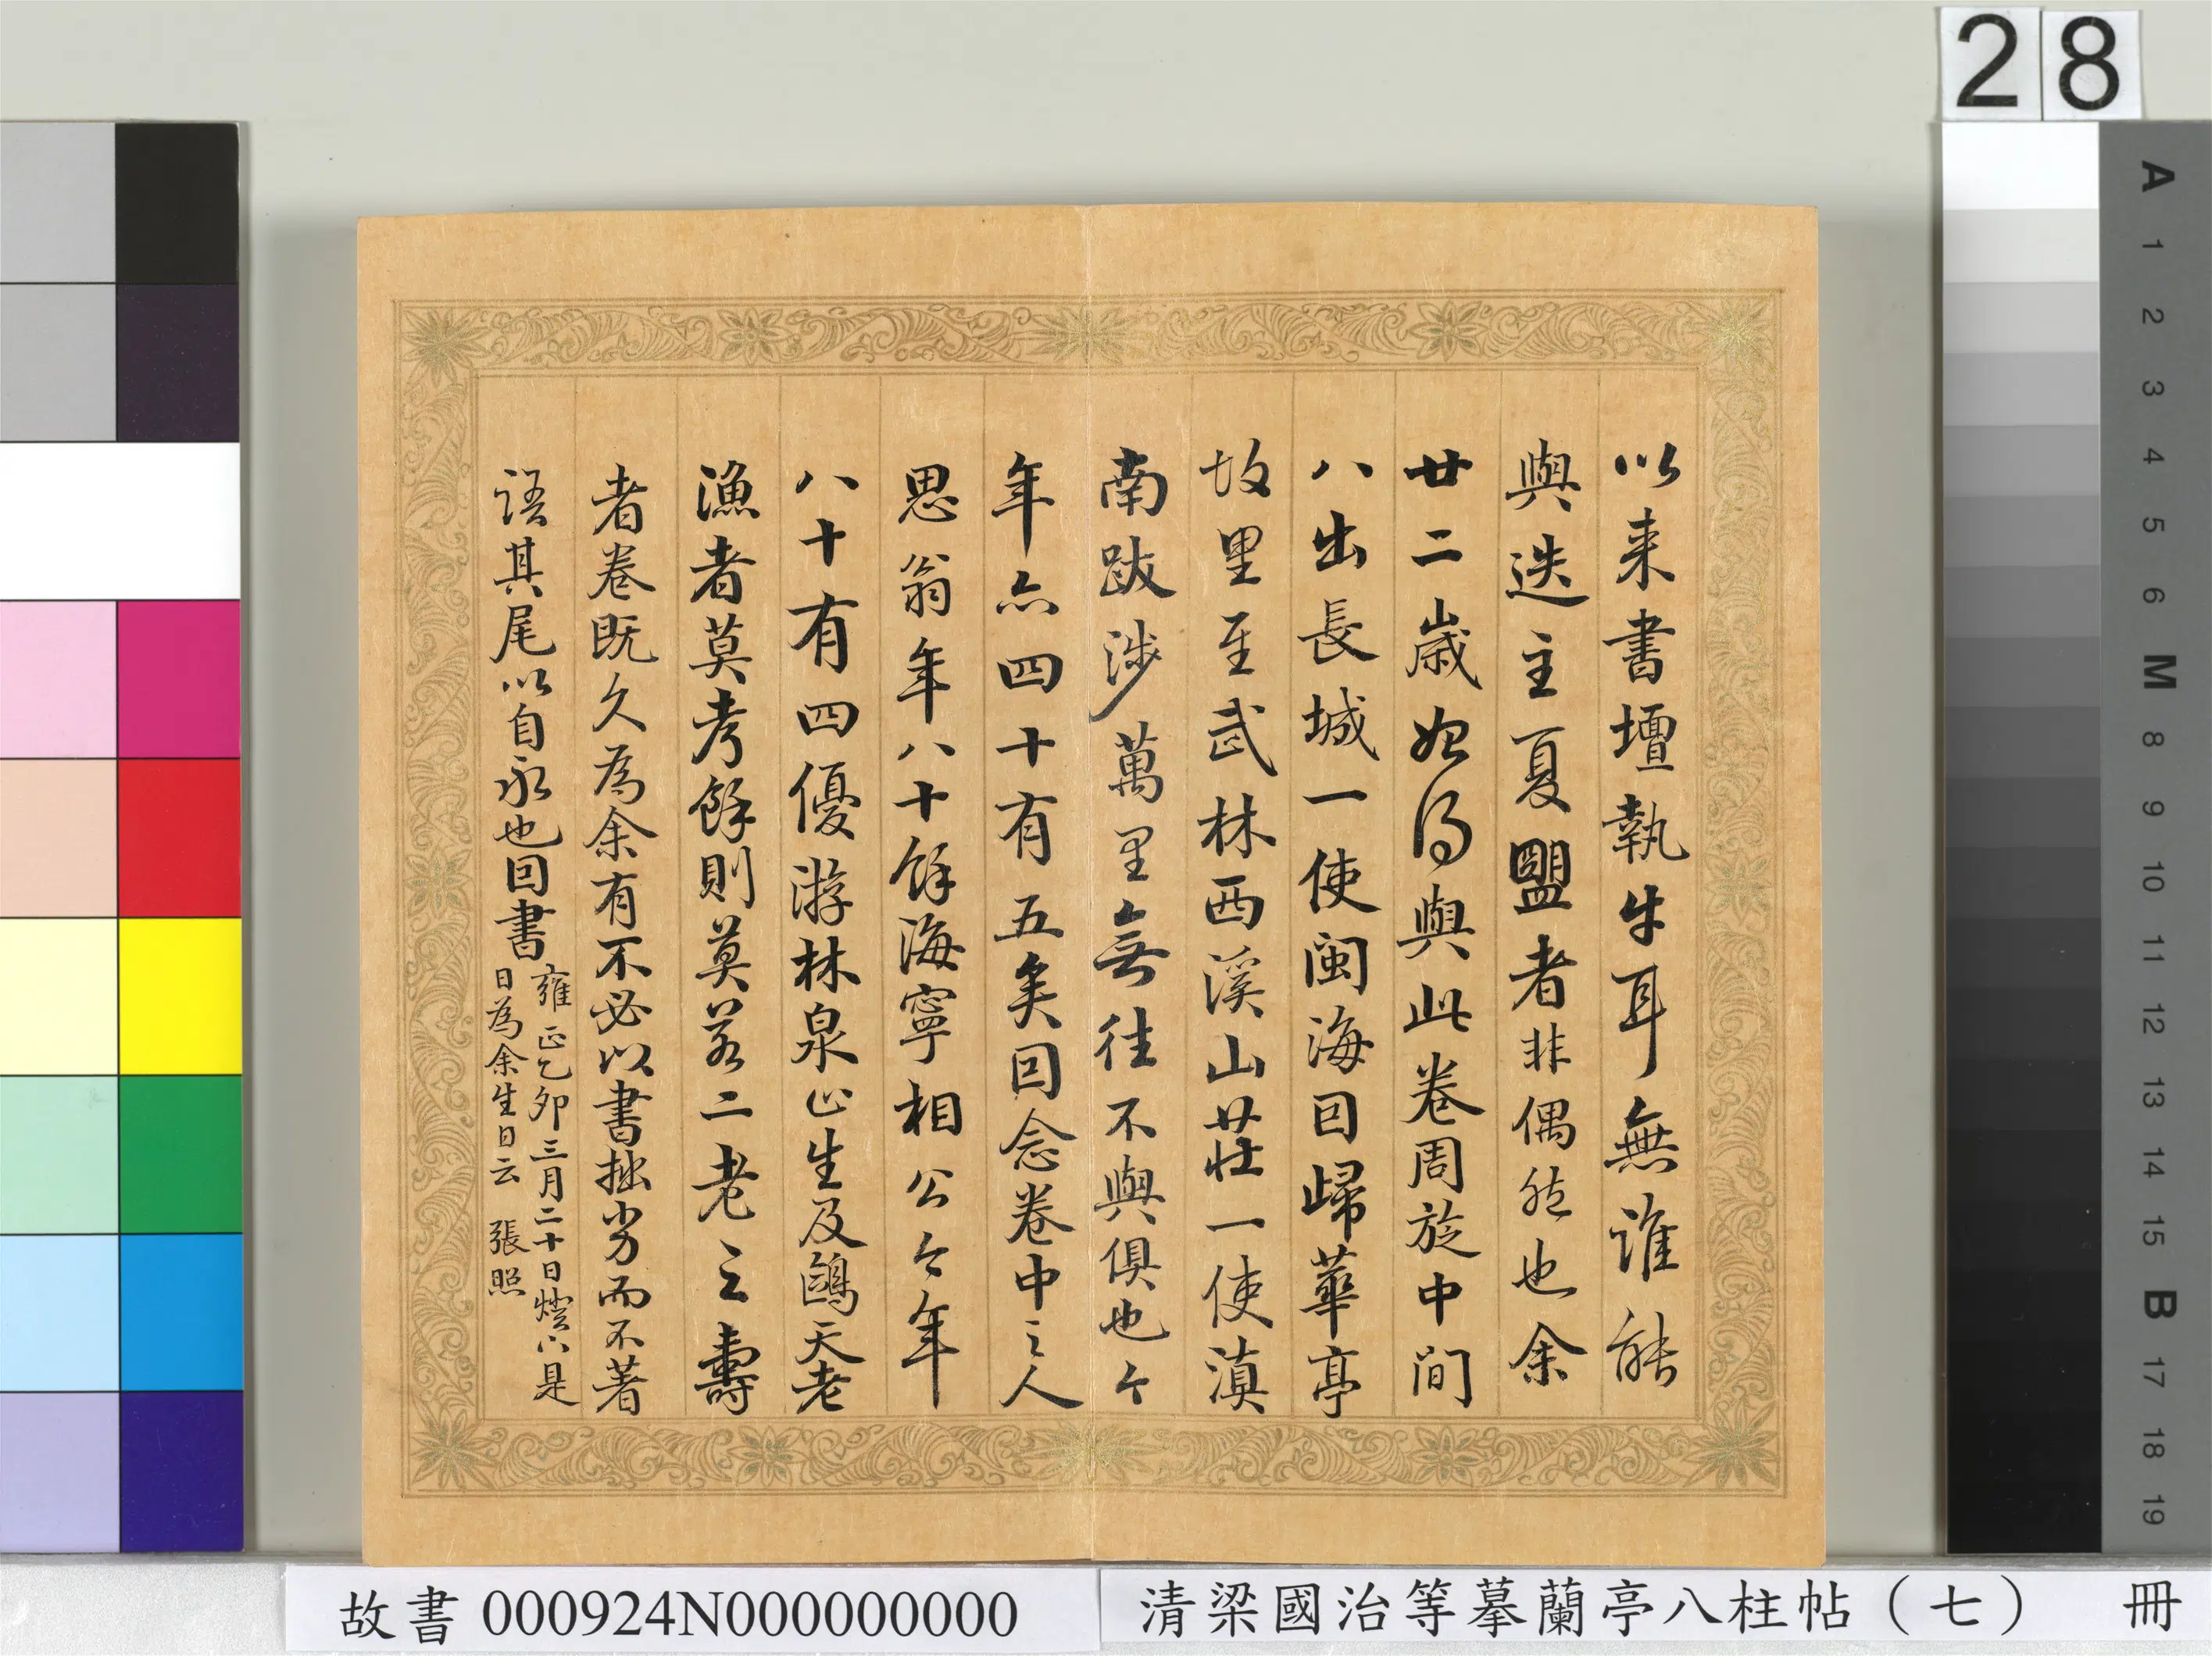 28
以来書壇執牛耳無誰能
與迭主夏盟者非偶然也余
廿二歲始得與此卷周旋中間
八出長城一使閩海回歸華亭
故里至武林西溪山莊一使滇
南跋涉萬里無往不與俱也今
年亦四十有五矣回念卷中之人
思翁年八十餘海寧相公今年
八十有四優游林泉山生及鷗天老
漁者莫考餘則莫若二老之壽
者卷既久為余有不必以書拙劣而不著
語其尾以自永也因書
雍正乙卯三月二十日燈下是
日為余生日云 張照
A
1
2
3
4
5
6
M
8
9
10
11
12
13
14
15
B
17
18
19
故書 000924N000000000
清梁國治等摹蘭亭八柱帖（七） 冊